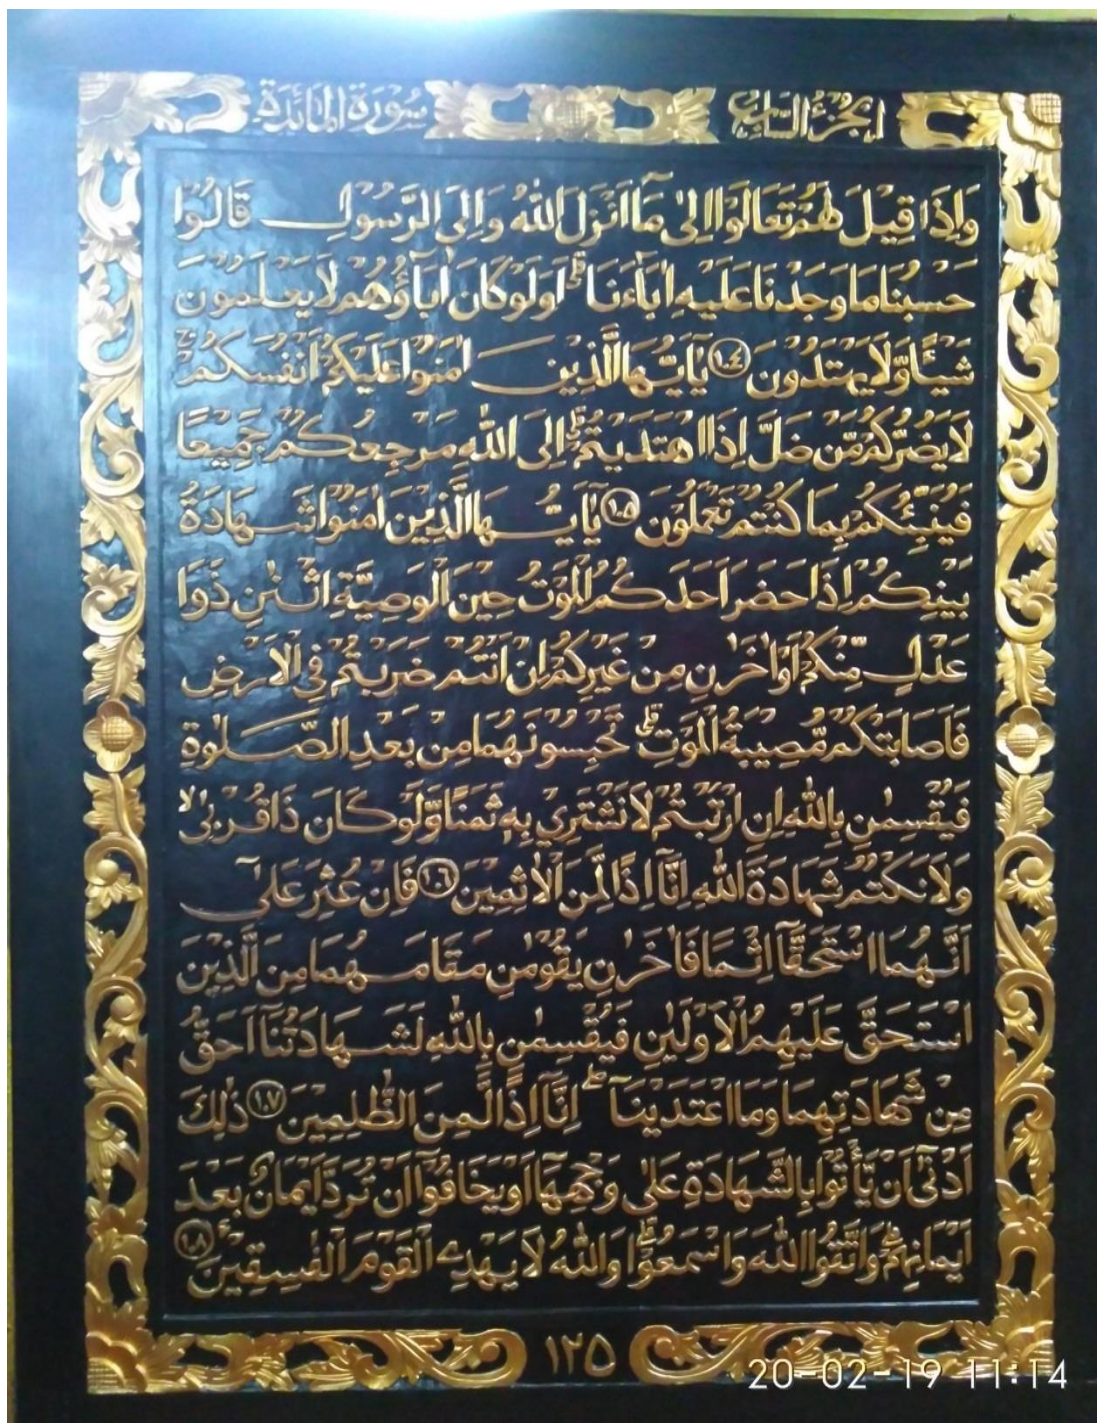 الجزء السابع
سورة المائدة
وَاِذَا قِيْلَ لَهُمْ تَعَالَوْا اِلٰى مَآ اَنْزَلَ اللّٰهُ وَاِلَى الرَّسُوْلِ قَالُوْا
حَسْبُنَا مَا وَجَدْنَا عَلَيْهِ اٰبَاۤءَنَا ۗ اَوَلَوْ كَانَ اٰبَاۤؤُهُمْ لَا يَعْلَمُوْنَ
شَيْـًٔا وَّلَا يَهْتَدُوْنَ ١٠٤ يٰٓاَيُّهَا الَّذِيْنَ اٰمَنُوْا عَلَيْكُمْ اَنْفُسَكُمْ ۚ
لَا يَضُرُّكُمْ مَّنْ ضَلَّ اِذَا اهْتَدَيْتُمْ ۗ اِلَى اللّٰهِ مَرْجِعُكُمْ جَمِيْعًا
فَيُنَبِّئُكُمْ بِمَا كُنْتُمْ تَعْمَلُوْنَ ١٠٥ يٰٓاَيُّهَا الَّذِيْنَ اٰمَنُوْا شَهَادَةُ
بَيْنِكُمْ اِذَا حَضَرَ اَحَدَكُمُ الْمَوْتُ حِيْنَ الْوَصِيَّةِ اثْنٰنِ ذَوَا
عَدْلٍ مِّنْكُمْ اَوْ اٰخَرٰنِ مِنْ غَيْرِكُمْ اِنْ اَنْتُمْ ضَرَبْتُمْ فِى الْاَرْضِ
فَاَصَابَتْكُمْ مُّصِيْبَةُ الْمَوْتِ ۗ تَحْبِسُوْنَهُمَا مِنْۢ بَعْدِ الصَّلٰوةِ
فَيُقْسِمٰنِ بِاللّٰهِ اِنِ ارْتَبْتُمْ لَا نَشْتَرِيْ بِهٖ ثَمَنًا وَّلَوْ كَانَ ذَا قُرْبٰىۙ
وَلَا نَكْتُمُ شَهَادَةَ اللّٰهِ اِنَّآ اِذًا لَّمِنَ الْاٰثِمِيْنَ ١٠٦ فَاِنْ عُثِرَ عَلٰٓى
اَنَّهُمَا اسْتَحَقَّآ اِثْمًا فَاٰخَرٰنِ يَقُوْمٰنِ مَقَامَهُمَا مِنَ الَّذِيْنَ
اسْتَحَقَّ عَلَيْهِمُ الْاَوْلَيٰنِ فَيُقْسِمٰنِ بِاللّٰهِ لَشَهَادَتُنَآ اَحَقُّ
مِنْ شَهَادَتِهِمَا وَمَا اعْتَدَيْنَآ ۖ اِنَّآ اِذًا لَّمِنَ الظّٰلِمِيْنَ ١٠٧ ذٰلِكَ
اَدْنٰٓى اَنْ يَّأْتُوْا بِالشَّهَادَةِ عَلٰى وَجْهِهَآ اَوْ يَخَافُوْٓا اَنْ تُرَدَّ اَيْمَانٌۢ بَعْدَ
اَيْمَانِهِمْ ۗ وَاتَّقُوا اللّٰهَ وَاسْمَعُوْا ۗ وَاللّٰهُ لَا يَهْدِى الْقَوْمَ الْفٰسِقِيْنَ ۚ ١٠٨
١٢٥
20-02-19 11:14